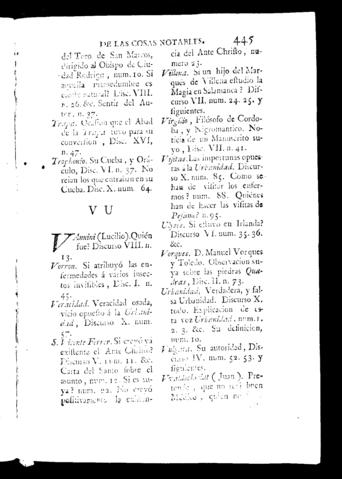 DE LAS COSAS NOTABLES. 445
del Toro de San Marcos,
dirigido al Obispo de Ciu-
dad Rodrigo, num. 10. Si
aquella mansedumbre es
Disc. VIII.
n. 26. &c. Sentir del Au-
tor, n. 37.
Trapa. Ocasion que el Abad
de la Trapa tuvo para su
conversion, Disc. XVI,
n. 47.
Trophonio. Su Cueba, y Orá-
culo, Disc. VI. n. 37. No
reían los que entraban en su
Cueba. Disc. X. num. 64.
V U
Vanini (Lucilio). Quién
fue? Discurso VIII. n.
13.
Varron. Si atribuyó las en-
fermedades á varios insec-
tos invisibles, Disc. I. n.
45.
Veracidad. Veracidad osada,
vicio opuesto á la Urbani-
dad, Discurso X. num.
57.
S. Vicente Ferrer. Si creyó ya
existente el Ante Christo?
Discurso V. num. 11. &c.
Carta del Santo sobre el
asunto, num. 12. Si es su-
ya? num. 22. No creyó
positivamente la
cia del Ante Christo, nu-
mero 23.
Villena. Si un hijo del Mar-
qués de Villena estudio la
Magia en Salamanca? Dif-
curso VII. num. 24. 25. y
siguientes.
Virgilio, Filósofo de Cordo-
ba, y Nigromantico. No-
ticia de un Manuscrito su-
yo, Disc. VII. n. 41.
Visitas. Las importunas opues-
tas á la Urbanidad. Discur-
so X. num. 85. Como se
han de visitar los enfer-
mos? num. 88. Quiénes
han de hacer las visitas de
Pesame? n. 95.
Ulysis. Si estuvo en Irlanda?
Discurso VI. num. 35. 36.
&c.
Vorques. D. Manuel Vorques
y Toledo. Observacion su-
ya sobre las piedras Qua-
dras, Disc. II. n. 73.
Urbanidad. Verdadera, y fal-
sa Urbanidad. Discurso X.
todo. Explicacion de es-
ta voz Urbanidad. num. 1.
2. 3. &c. Su definicion,
num. 10.
Vulgata. Su autoridad, Dis-
curso IV. num. 52. 53. y
siguientes.
(Juan). Pre-
tende, que no será buen
Medico, quien no